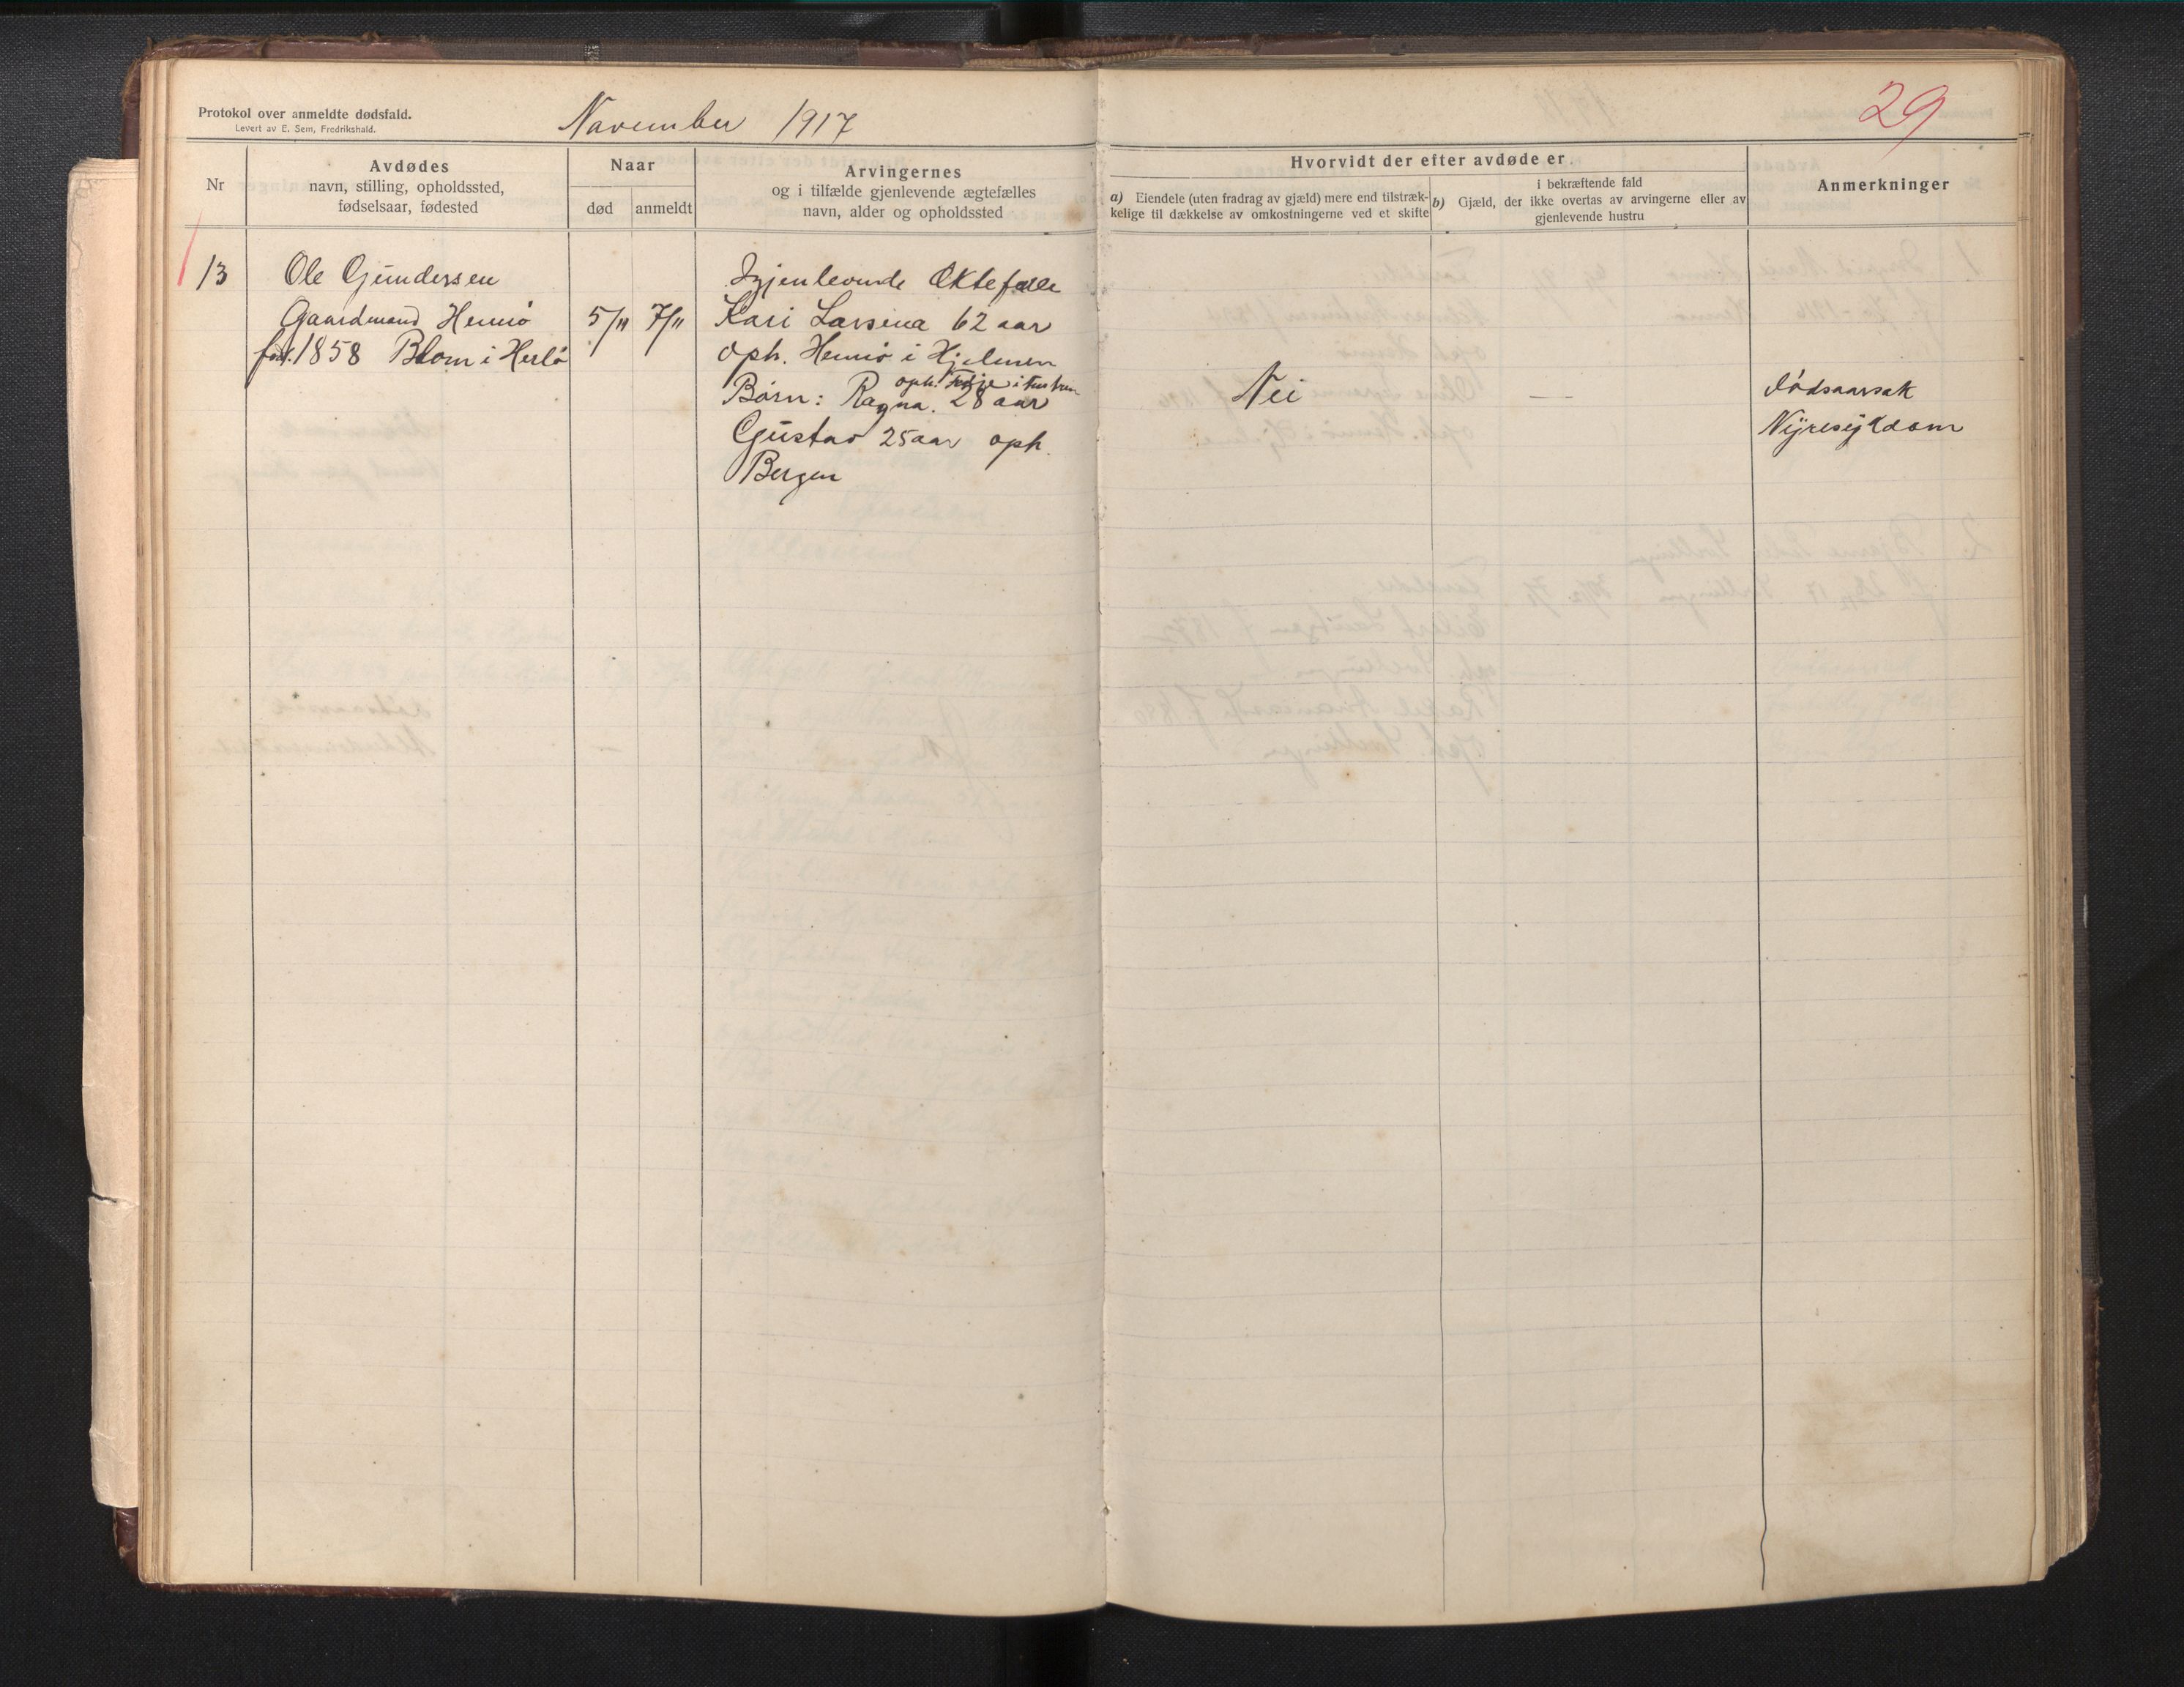 Protokol over anmeldte dødsfald.
Levert av E. Sem, Fredrikshald.
November 1917
29
Nr
Avdødes
navn, stilling, opholdssted,
fødselsaar, fødested
Naar
død
anmeldt
Arvingernes
og i tilfælde gjenlevende ægtefælles
navn, alder og opholdssted
Hvorvidt der efter avdøde er
a) Eiendele (uten fradrag av gjæld) mere end tilstræk-
kelige til dækkelse av omkostningerne ved et skifte
i bekræftende fald
b) Gjæld, der ikke overtas av arvingerne eller av
gjenlevende hustru
Anmerkninger
13
Ole Gundersen
Gaardmand Hennø
fød. 1858 Blom i Herlø
5/11
7/11
Igjenlevende Ektefælle
Kari Larsena 62 aar
oph. Hennø i Hjelmen
oph. Fedje i
Børn: Ragna. 28 aar
Gustav 25 aar oph.
Bergen
Nei
—
Dødsaarsak
Nyresykdom